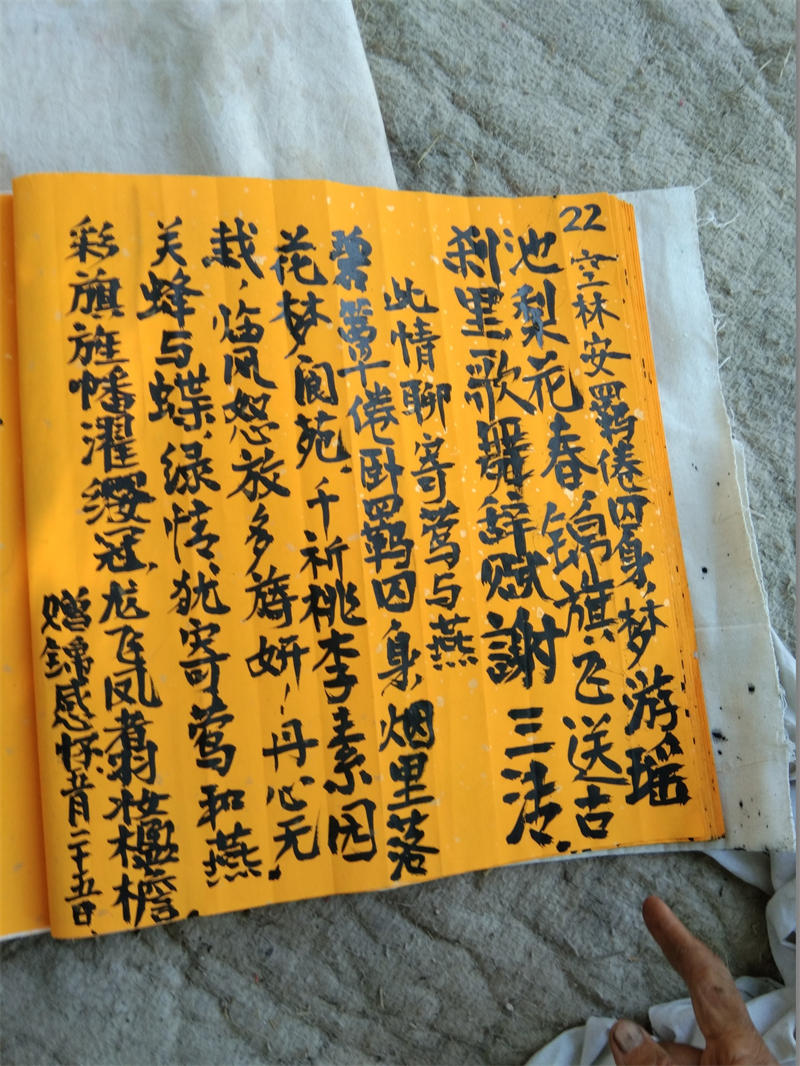 22
空林安羁倦囚身,梦游瑶
池梨花春,锦旗飞送古
刹里歌舞辞赋謝三清.
此情聊寄莺与燕
碧箩半倦卧羁囚身烟里落
花梦阆苑.千祈桃李素因
栽,临风怒放多旖妍,丹心无
关蜂与蝶.绿情犹寄莺和燕.
彩旗旌幡濯缨冠.龙飞凤翥妆楹檐.
赠锦感怀 五月二十五日